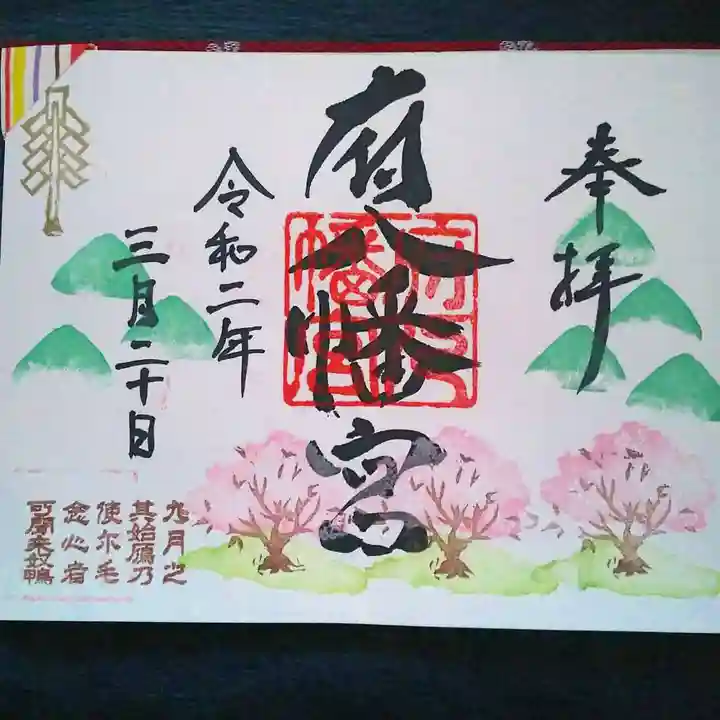 奉拝
府八幡宮
府八
幡宮
令和二年
三月二十日
九月之
其始鴈乃
使尓毛
念心者
可聞来奴鴨